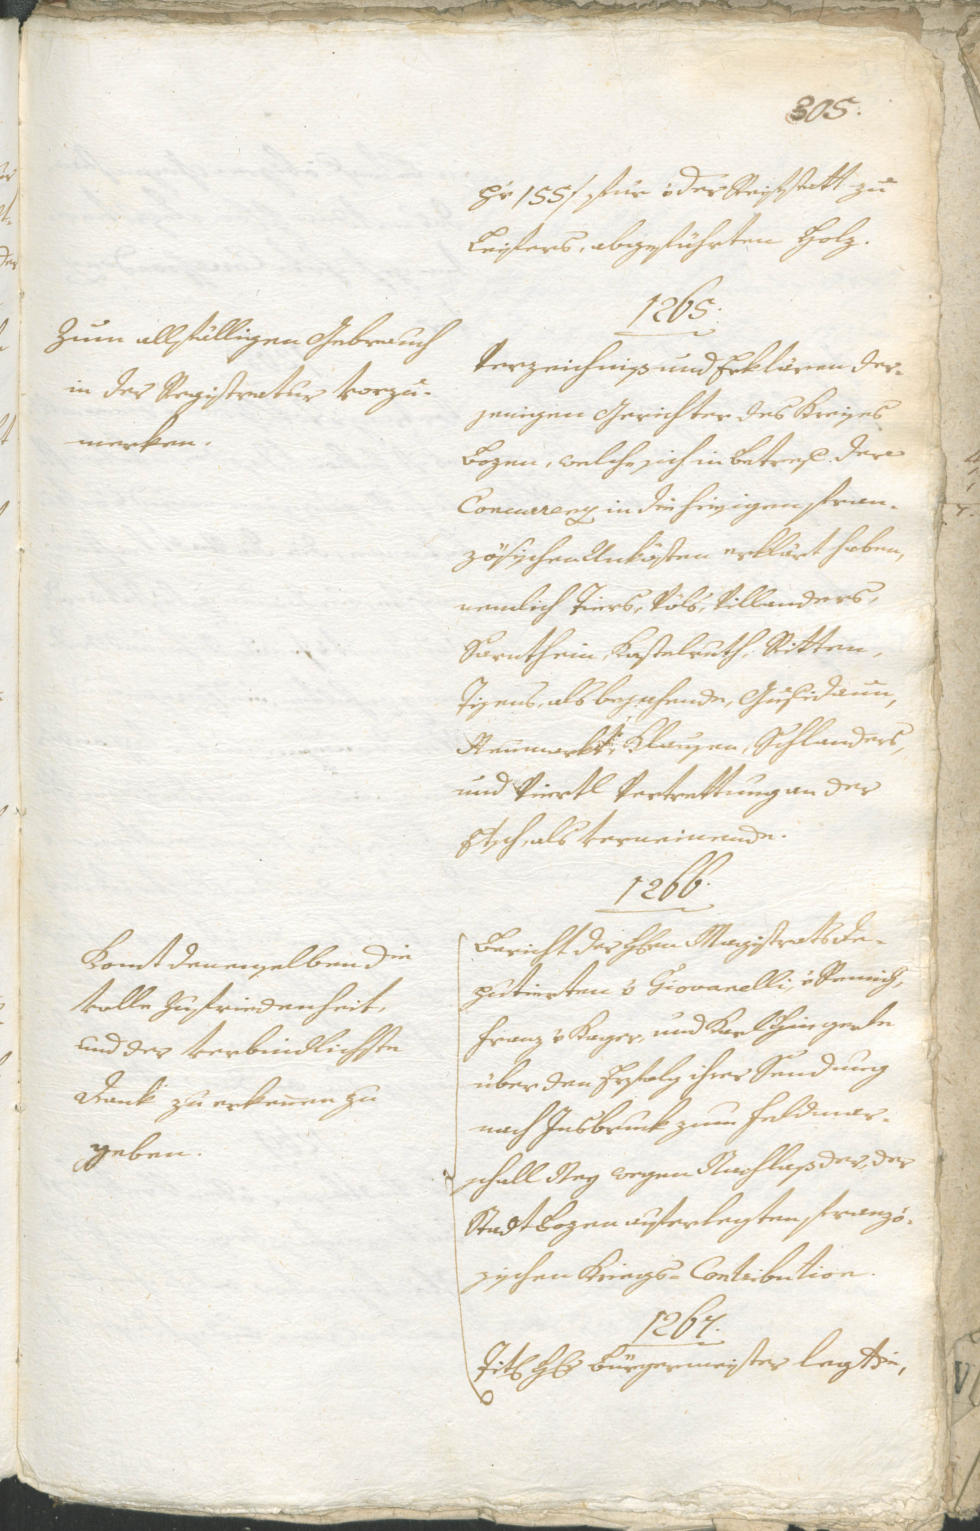 305.
pr 155 f für v der Reifstatt zu
Leifers, abgeführten Holz.
1265.
Zum allfälligen Gebrauch
in der Registratur vorzu-
merken.
Verzeichniß und Erklären der-
jenigen Gerichter des Kreises
Bozen, welche sich in Betref der
Concurrenz in die hiesigen fran-
zösischen Unkösten erklärt haben,
nemlich Tiers, Völs, Villanders,
Sarnthein, Kastelruth, Ritten,
Tisens, als bejahende, Gufidaun,
Neumarkt, Klausen, Schlanders,
und Viertl Vertrettung an der
Etsch, als verneinende.
1266.
Komt denenselben die
volle Zufriedenheit,
und der verbindlichste
Dank zu erkennen zu
geben.
Bericht der Hhrn Magistrats De-
putierten v Giovanelli, v
Franz v Kager, und Karl
über den Erfolg ihrer Sendung
nach Insbruck zum Feldmar-
schall Ney wegen Nachlaß der, der
Stadt Bozen auferlegten franzö-
sischen Kriegs-Contribution.
1267.
Titl Hr Bürgermeister legt ein,